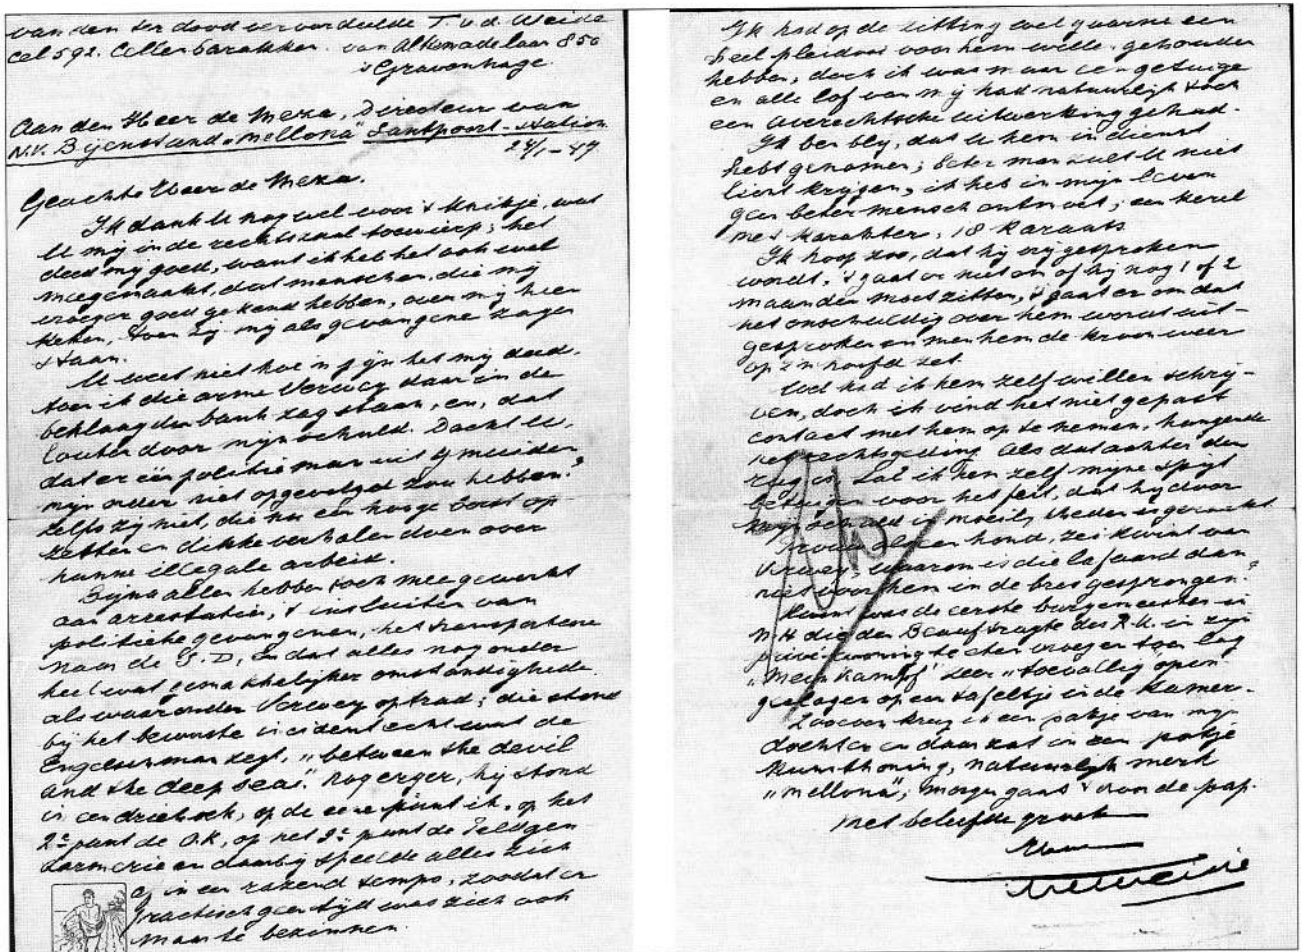 van den ter dood veroordeelde T. v. d. Weide
Cel 592. Cellenbarakken. van Alkemadelaan 850
's Gravenhage.
Aan den Heer de Meza, Directeur van
N.V. Bijenstand "Mellona" Santpoort-Station.
24/1-47
Geachte Heer de Meza.
Ik dank U nog wel voor 't knikje, wat
U mij in de rechtszaal toewierp; het
deed mij goed, want ik heb het ook wel
meegemaakt, dat menschen, die mij
vroeger goed gekend hebben, over mij heen
keken, toen zij mij als gevangene zagen
staan.
U weet niet hoe'n pijn het mij deed,
toen ik die arme Verwey daar in de
beklaagden bank zag staan, en, dat
louter door mijn schuld. Dacht U,
dat er één politieman uit IJmuiden
mijn order niet opgevolgd zou hebben?
Zelfs zij niet, die nu een hooge borst op
zetten en dikke verhalen doen over
hunne illegale arbeid.
Bijna allen hebben toch meegewerkt
aan arrestatie, 't insluiten van
politieke gevangenen, het transporteren
naar de S.D, en dat alles nog onder
heel wat gemakkelijker omstandigheden
als waaronder Verwey optrad; die stond
bij het bewuste incident echt wat de
Engelschman zegt, "between the devil
and the deep sea." Nog erger, hij stond
in een driehoek, op de eene punt ik, op het
2e punt de O.K, op het 3e punt de Feldgen
darmerie en daarbij speelde alles zich
af in een razend tempo, zoodat er
practisch geen tijd was zich ook
maar te bezinnen.
Ik had op de zitting wel gaarne een
heel pleidooi voor hem willen gehouden
hebben, doch ik was maar een getuige
en alle lof van mij had natuurlijk toch
een averechtsche uitwerking gehad.
Ik ben bly, dat U hem in dienst
hebt genomen; beter man zult U niet
licht krijgen, ik heb in mijn leven
geen beter mensch ontmoet; een kerel
met karakter, 18 karaats.
Ik hoop zoo, dat hij vrijgesproken
wordt, 't gaat er niet om of hij nog 1 of 2
maanden moet zitten, 't gaat er om dat
het onschuldig over hem wordt uit-
gesproken en men hem de kroon weer
op z'n hoofd zet.
Wel had ik hem zelf willen schrij-
ven, doch ik vind het niet gepast
contact met hem op te nemen, hangende
het rechtsgeding. Als dat achter den
rug is, zal ik hem zelf mijne spijt
betuigen voor het feit, dat hij door
mijn schuld in moeilijkheden is geraakt
Trouw als een hond, zei Kwint van
Verwey, waarom is die lafaard dan
niet voor hem in de bres gesprongen?
Kwint was de eerste burgemeester in
N.H die den Beauftragte des R.K. in zijn
privé-woning te eten vroeg en toen lag
"Mein Kampf" zeer "toevallig" open
geslagen op een tafeltje in de kamer.
Zooeven kreeg ik een pakje van mijn
dochter en daar zat in een potje
kunsthoning, natuurlijk merk
"Mellona", morgen gaat 't door de pap.
Met beleefde groet